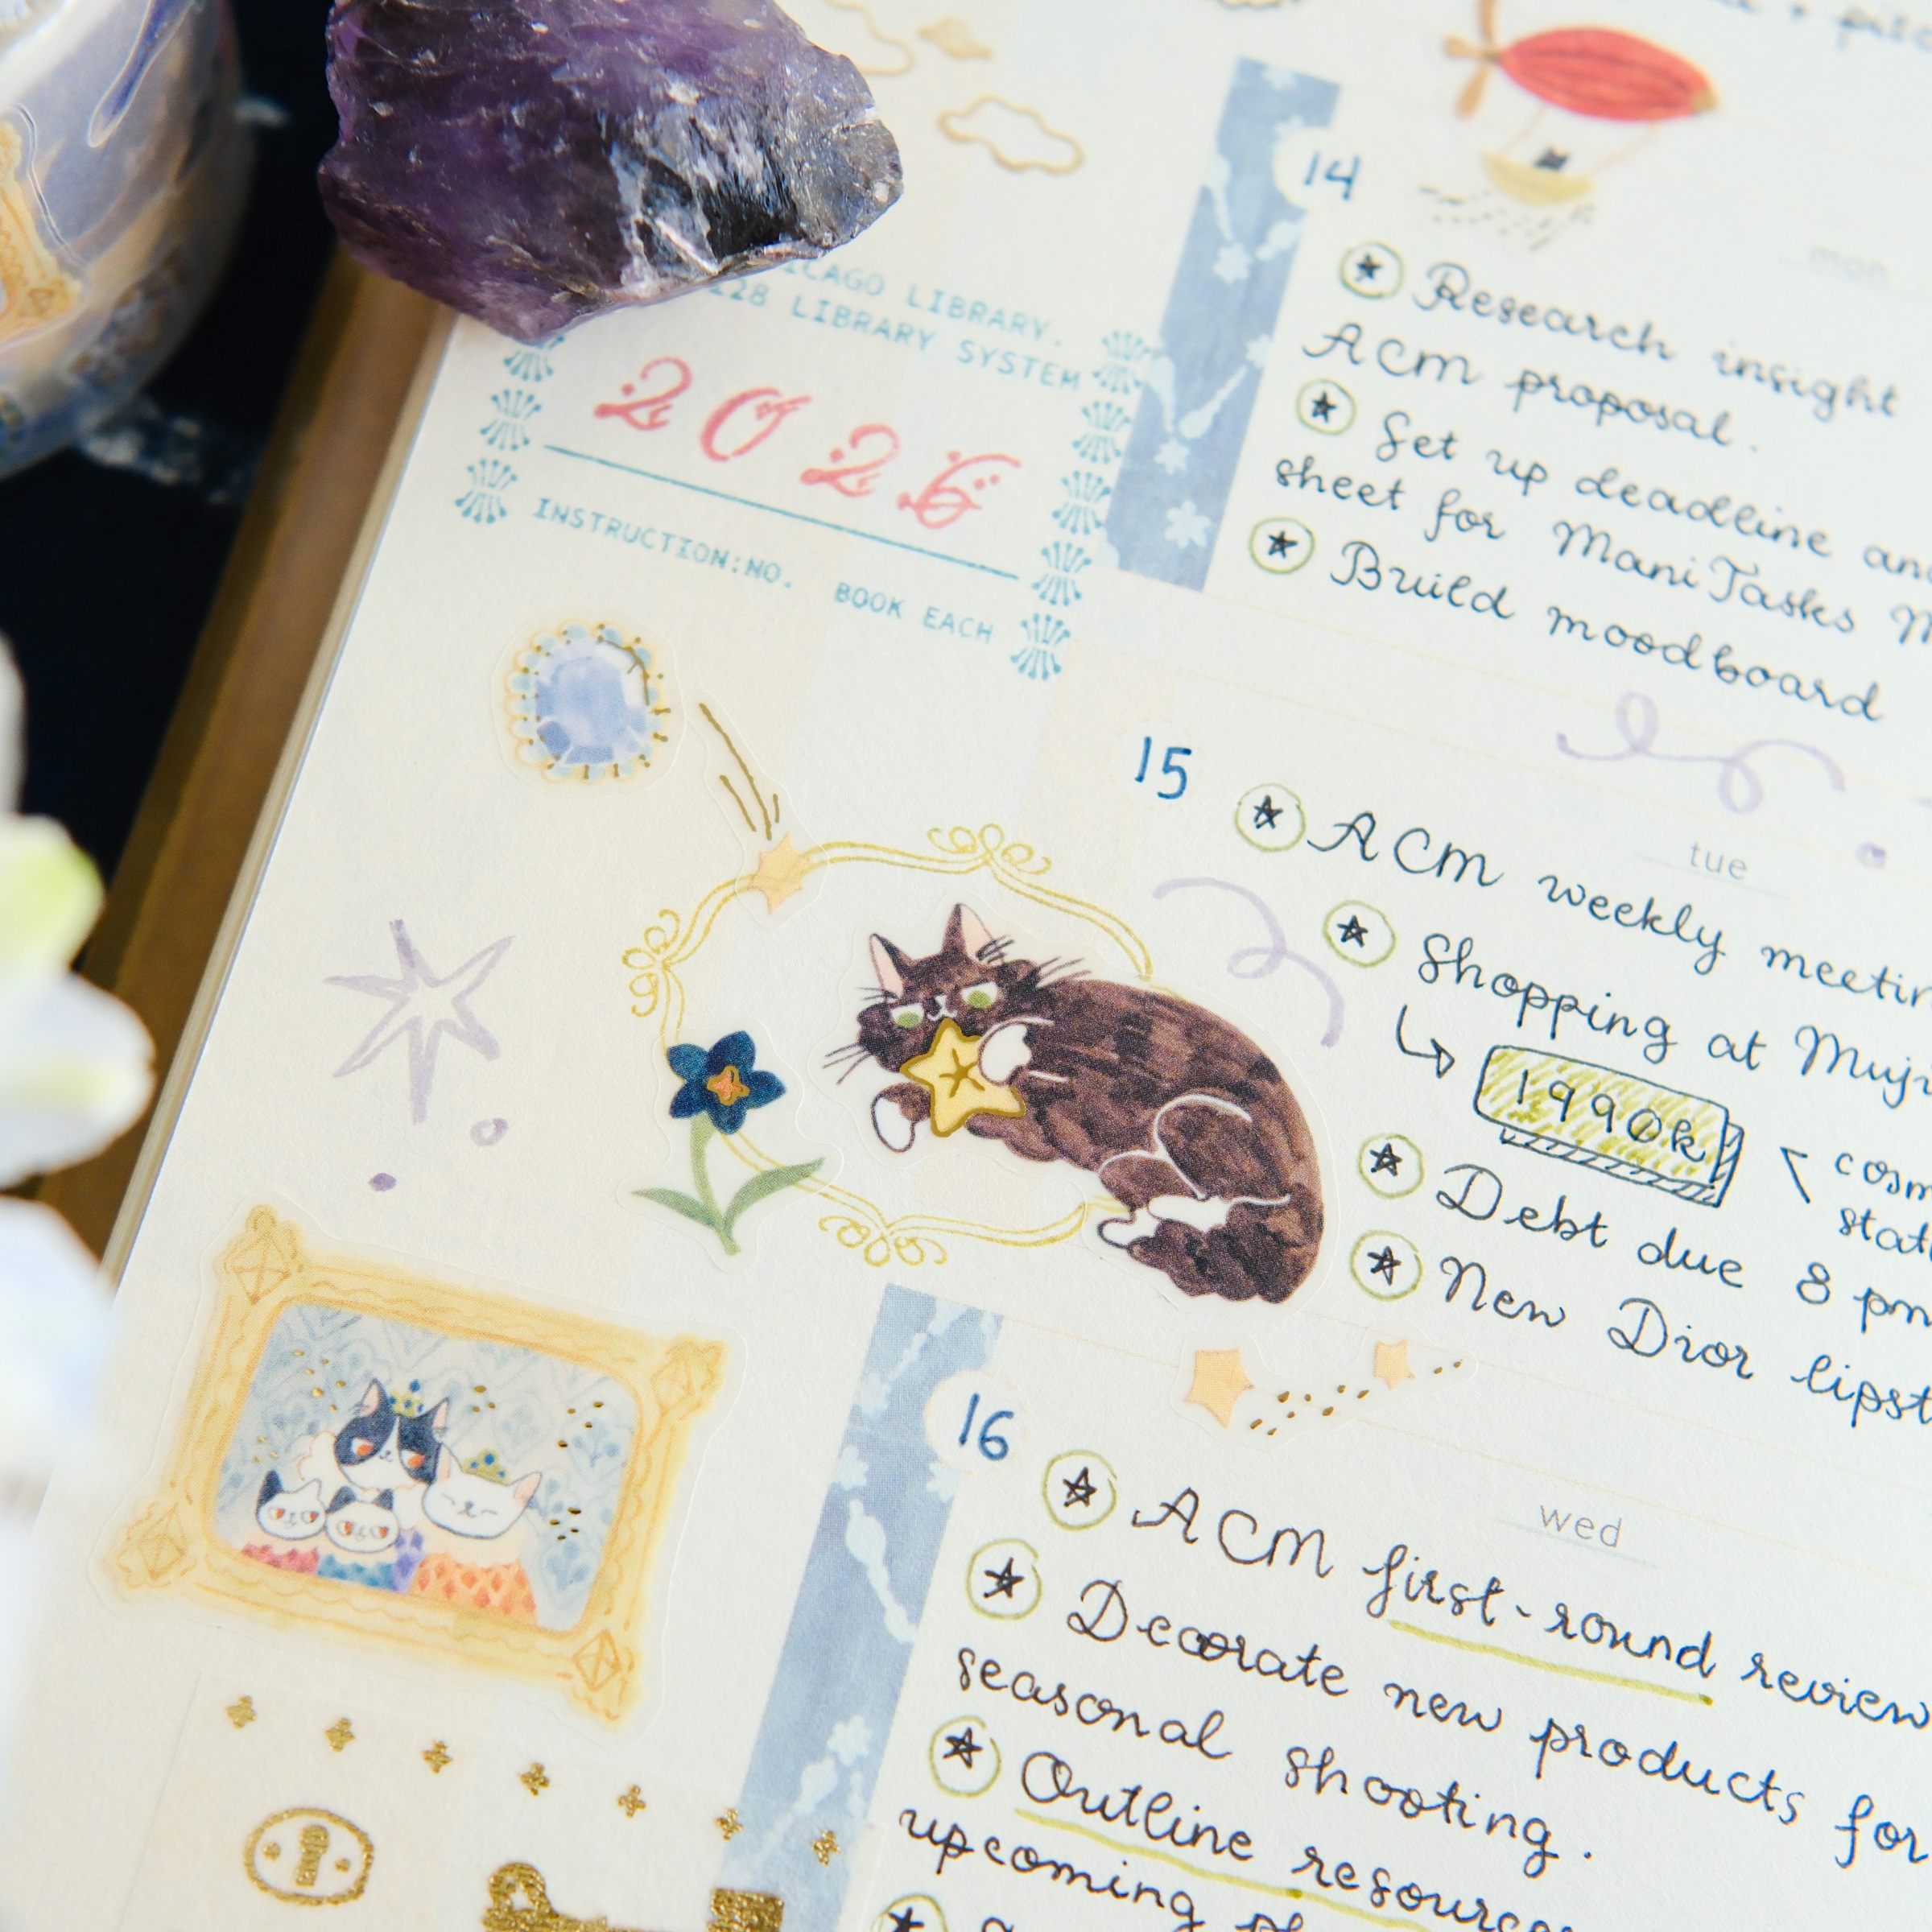 LIBRARY.
LIBRARY SYSTEM
2026
INSTRUCTION:NO. BOOK EACH
14
mon
Research insight
ACM proposal.
Set up deadline
sheet for ManiTasks
Build moodboard
15
tue
ACM weekly
Shopping at
1990k
Debt due 8 pm
New Dior
16
wed
ACM first-round review
Decorate new products for
seasonal shooting.
Outline
upcoming